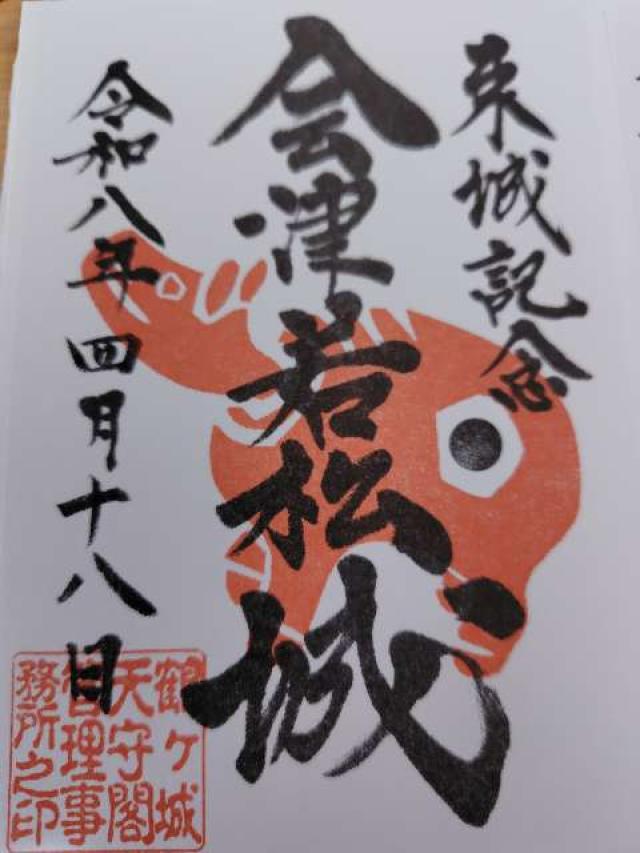 来城記念
会津若松城
令和八年四月十八日
鶴ヶ城
天守閣
管理事
務所之印